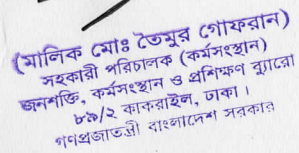 (মালিক মোঃ তৈমুর গোফরান)
সহকারী পরিচালক (কর্মসংস্থান)
জনশক্তি, কর্মসংস্থান ও প্রশিক্ষণ ব্যুরো
৮৯/২ কাকরাইল, ঢাকা।
গণপ্রজাতন্ত্রী বাংলাদেশ সরকার